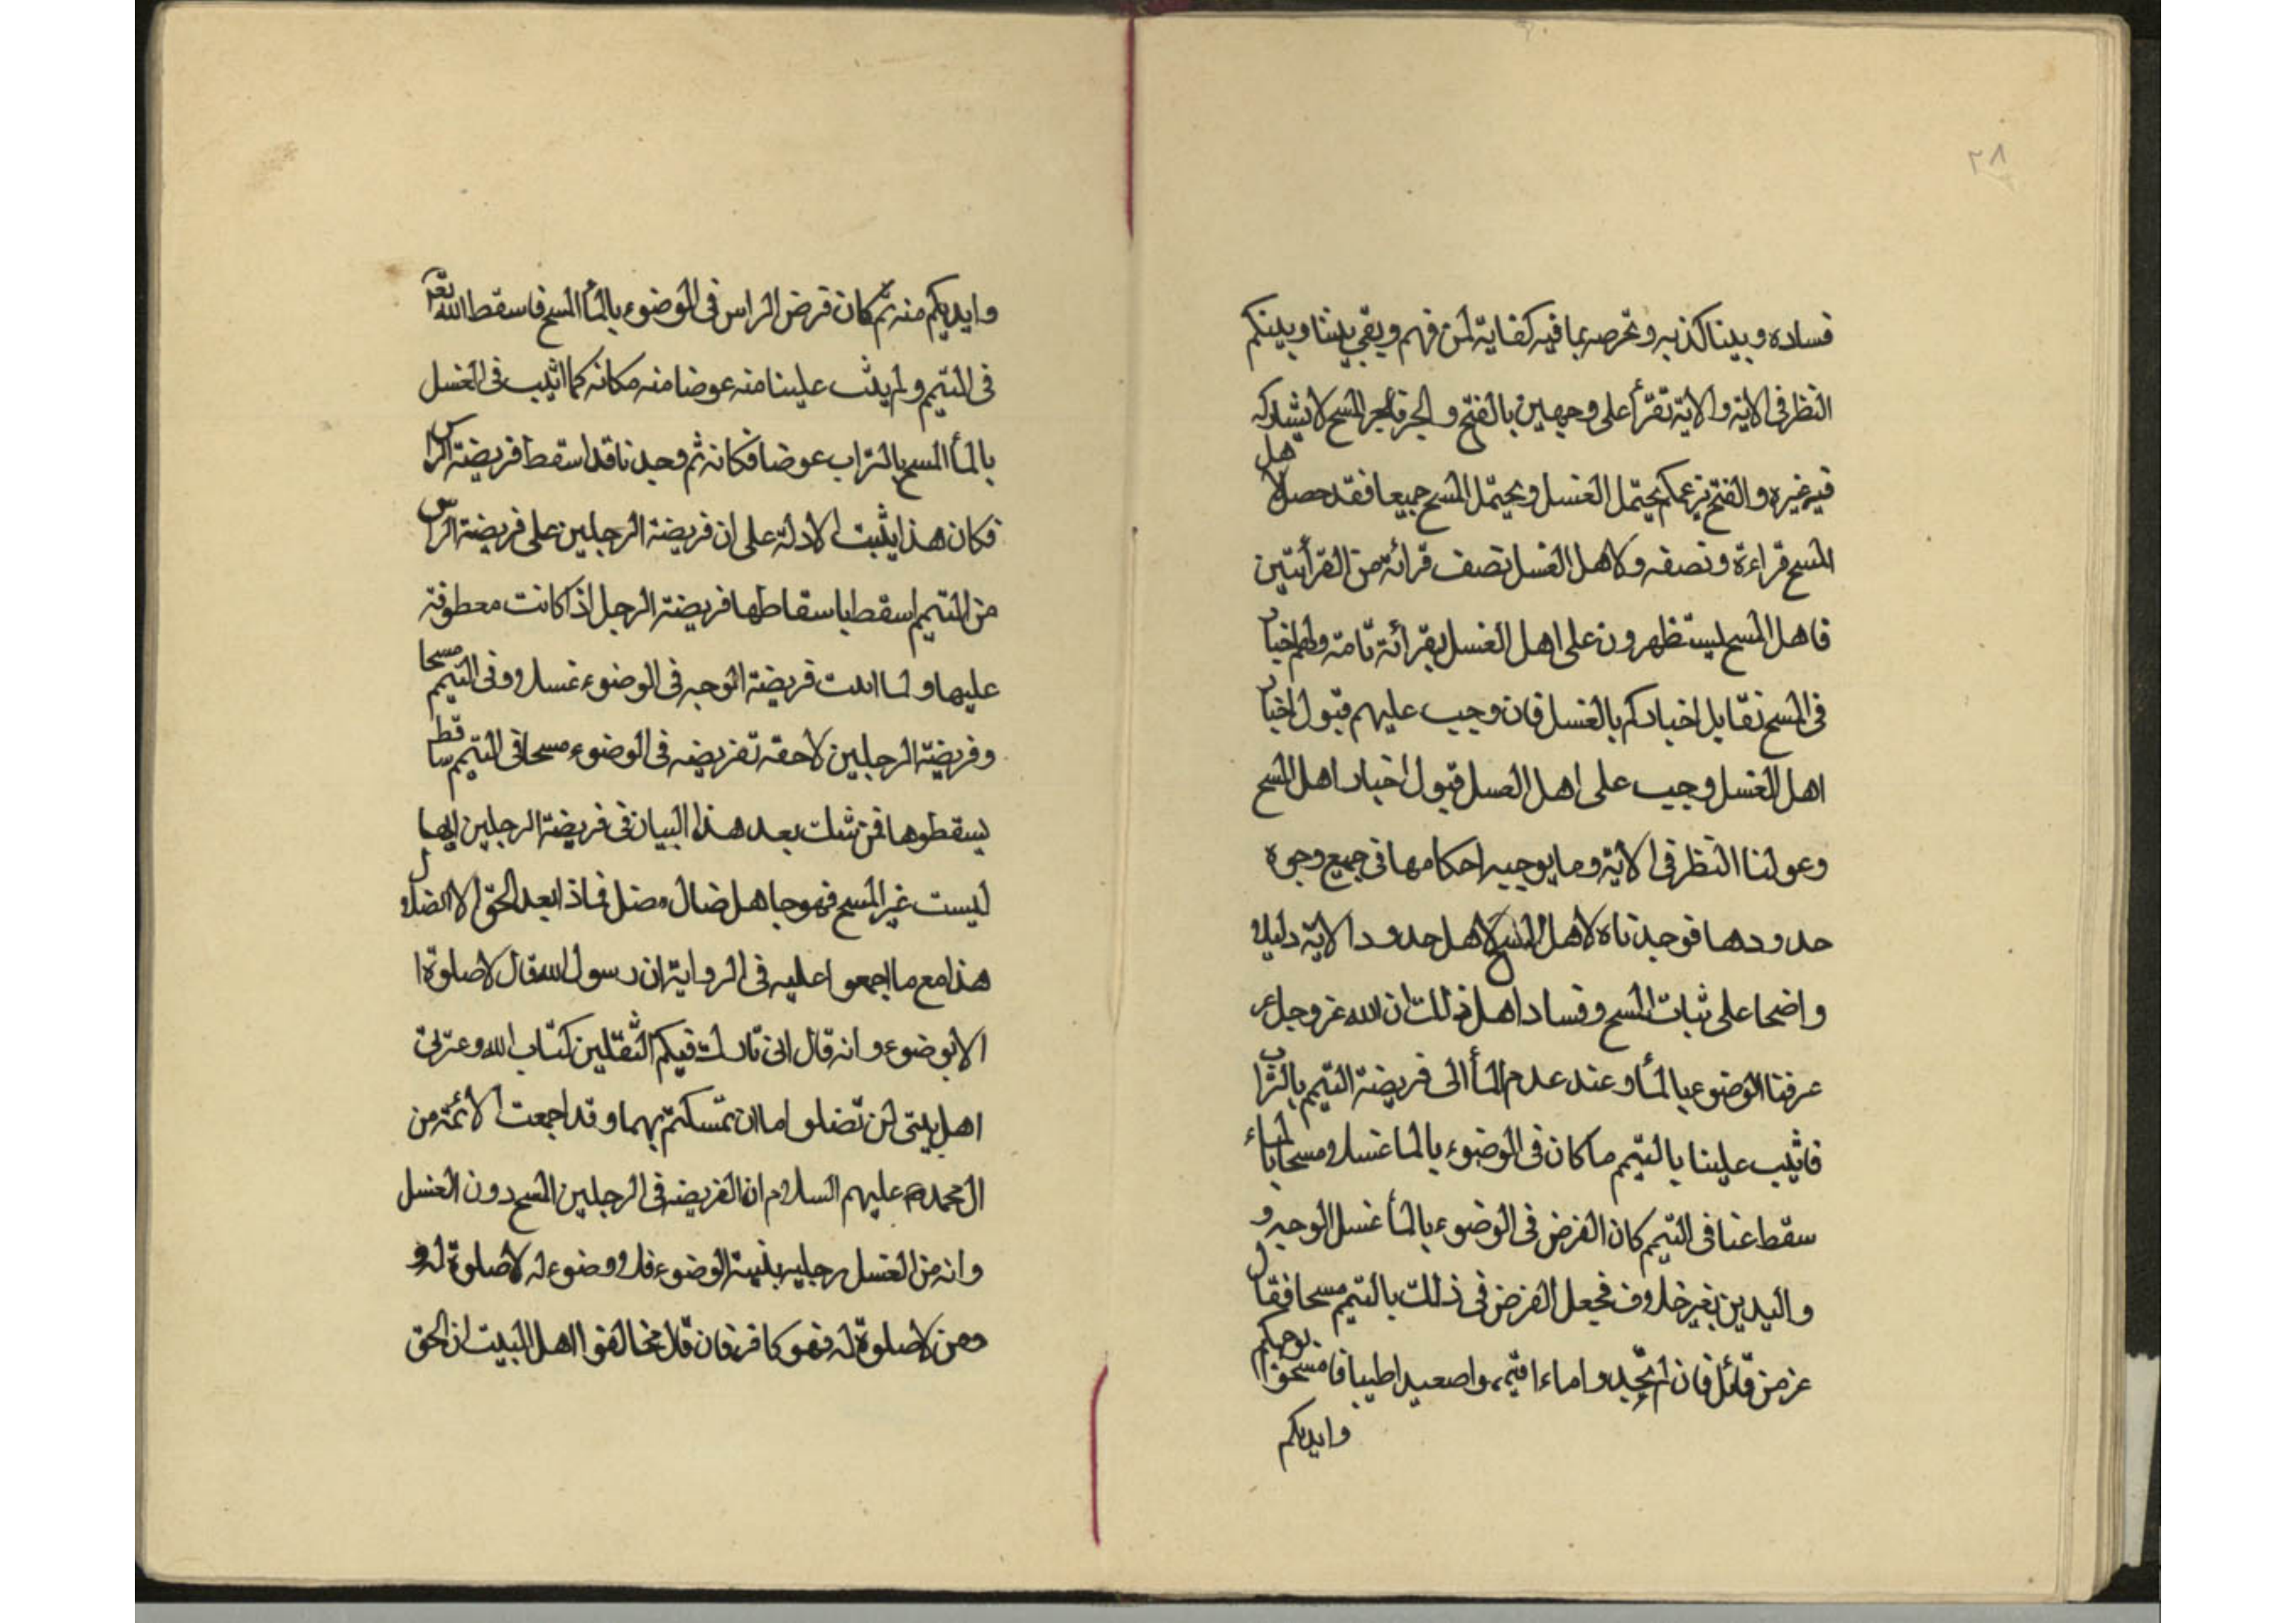 ٢٨
فساده وبينا كذبه وتخرصه بما فيه كفاية لمن فهم وبقى بيننا وبينكم
النظر فى الاية والاية تقرأ على وجهين بالفتح والجر فالجر المسح لا يشاركه
فيه غيره والفتح بزعمكم يحتمل الغسل ويحتمل المسح جميعا فقد حصل لاهل
المسح قراءة ونصف ولاهل الغسل نصف قرائة من القرأتين
فاهل المسح يستظهرون على اهل الغسل بقرائة تامة ولهم اخبار
فى المسح تقابل اخباركم بالغسل فان وجب عليهم قبول اخبار
اهل الغسل وجب على اهل الغسل قبول اخبار اهل المسح
وعولنا النظر فى الاية وما يوجبه احكامها فى جميع وجوه
حدودها فوجدناه لاهل المسح لاهل حدود الاية دليلا
واضحا على ثبات المسح وفساد اهل ذلك ان الله عز وجل
عرفنا الوضوء بالمأ وعند عدم المأ الى فريضة التيمم بالتراب
فاثيب علينا بالتيمم ما كان فى الوضوء بالما غسلا ومسحا بالماء
سقط عنا فى التيمم كان الفرض فى الوضوء بالمأ غسل الوجه و
واليدين بغير خلاف فجعل الفرض فى ذلك بالتيمم مسحا فقال
عز من قائل فان لم تجدوا ماءا فتيمموا صعيدا طيبا فامسحوا بوجوهكم
وايديكم
وايديكم منه ثم كان فرض الراس فى الوضوء بالمأ المسح فاسقط الله تعا
فى التيمم ولم يثب علينا منه عوضا منه مكانه كما اثيب فى الغسل
بالمأ المسح بالتراب عوضا فكانه ثم وجدنا قد اسقط فريضة الراس
فكان هذا يثبت الادلة على ان فريضة الرجلين على فريضة الراس
من التيمم اسقط باسقاطها فريضة الرجل اذ كانت معطوفة
عليها ولما فريضة الوجه فى الوضوء غسلا وفى التيمم مسحا
وفريضة الرجلين لاحقه تفريضه فى الوضوء مسحا فى التيمم ساقط
يسقطوها فمن شك بعد هذا البيان فى فريضة الرجلين انها
ليست غير المسح فهو جاهل ضال مضل فماذا بعد الحق الا الضلال
هذا مع ما اجمعوا عليه فى الرواية ان رسول الله قال لا صلوة ا
الا بوضوء وانه قال انى تارك فيكم الثقلين كتاب الله وعترتى
اهل بيتى لن تضلوا ما ان تمسكتم بهما وقد اجمعت الائمة من
ال محمد عليهم السلام ان الفريضه فى الرجلين المسح دون الغسل
وانه من الغسل رجليه بنية الوضوء فلا وضوء له لا صلوة له و
ومن لا صلوة له فهو كافر فان قال مخالفوا اهل البيت ان الحق